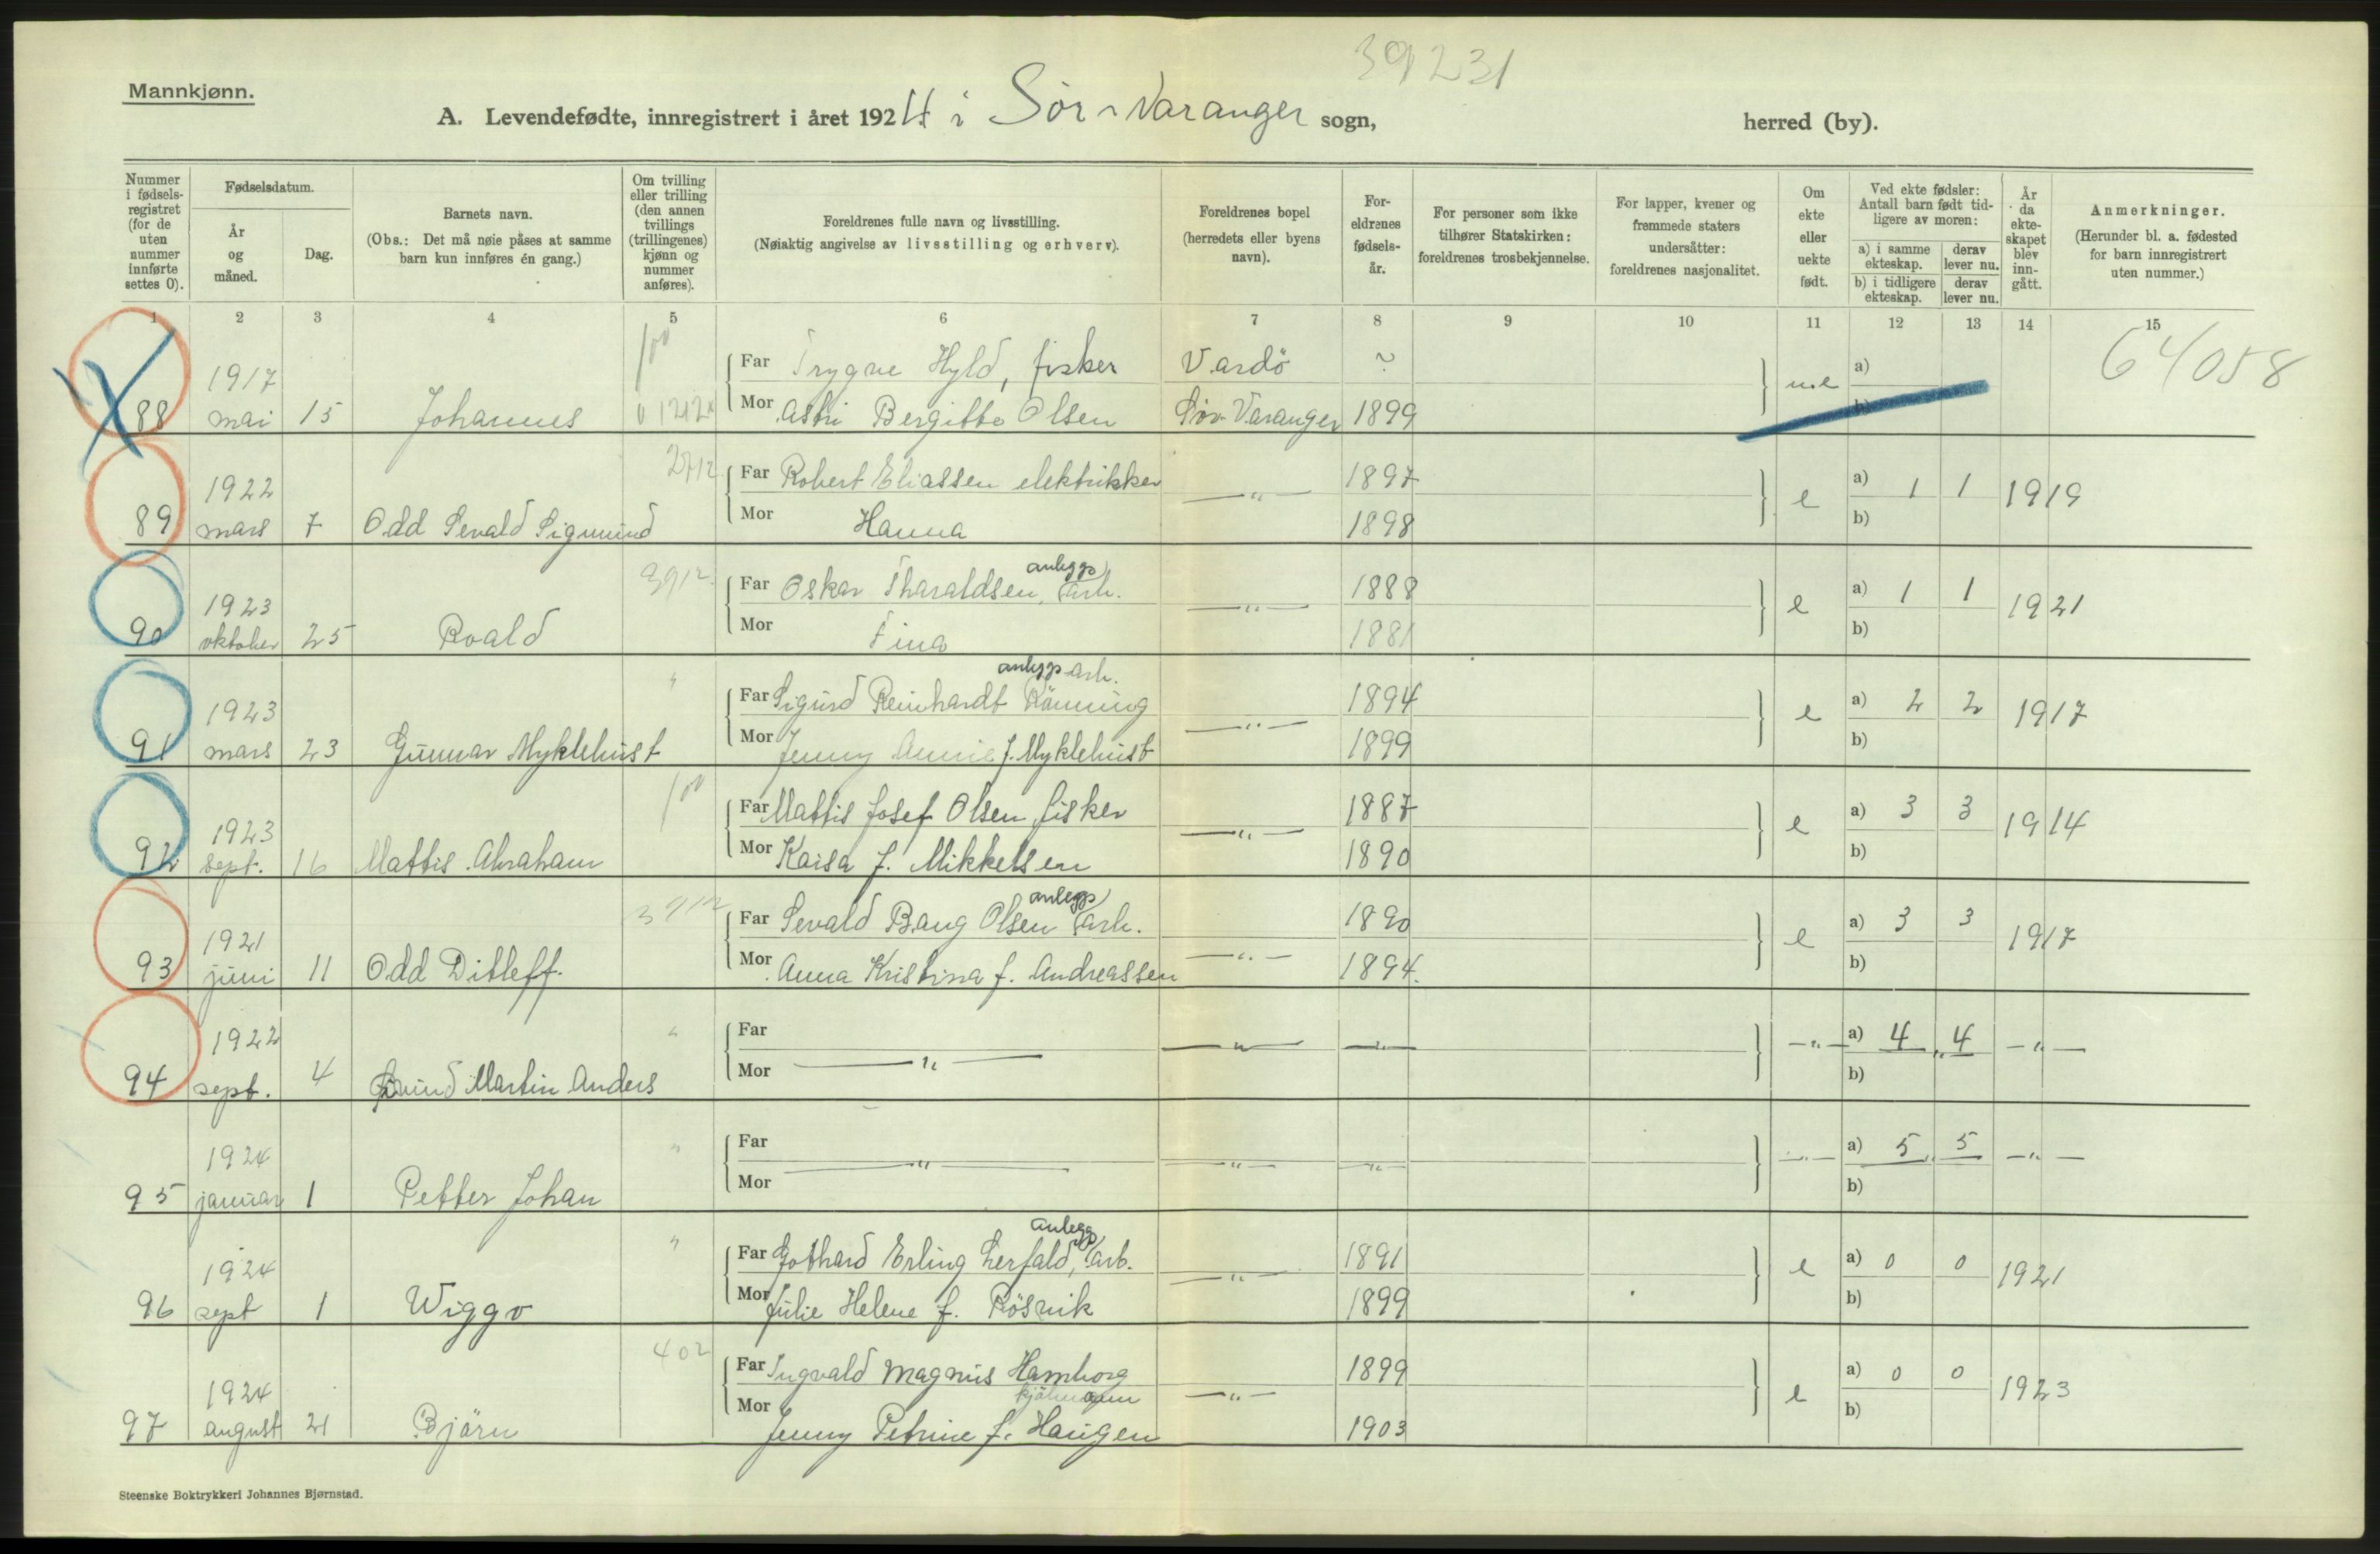 39231
Mannkjønn.
A. Levendefødte, innregistrert i året 1924 i Sör-Varanger sogn, herred (by).
Nummer i fødsels-registret (for de uten nummer innførte settes 0).
Fødselsdatum.
År og måned.
Dag.
Barnets navn.
(Obs.: Det må nøie påses at samme barn kun innføres én gang.)
Om tvilling eller trilling (den annen tvillings (trillingenes) kjønn og nummer anføres).
Foreldrenes fulle navn og livsstilling.
(Nøiaktig angivelse av livsstilling og erhverv).
Foreldrenes bopel (herredets eller byens navn).
For-eldrenes fødsels-år.
For personer som ikke tilhører Statskirken: foreldrenes trosbekjennelse.
For lapper, kvener og fremmede staters undersåtter: foreldrenes nasjonalitet.
Om ekte eller uekte født.
Ved ekte fødsler: Antall barn født tid-ligere av moren:
a) i samme ekteskap.
derav lever nu.
b) i tidligere ekteskap.
derav lever nu.
År da ekte-skapet blev inn-gått.
Anmerkninger.
(Herunder bl. a. fødested for barn innregistrert uten nummer.)
1 2 3 4 5 6 7 8 9 10 11 12 13 14 15
100 64058
1917 Far Trygve Hyld, fisker Vardö ? u.e a)
88 mai 15 Johannes Mor Astri Bergitte Olsen Sör-Varanger 1899 b)
1922 Far Robert Eliassen elektrikker —"— 1897 e a) 1 1 1919
89 mars 7 Odd Sevald Sigmund Mor Hanna 1898 b)
3912 anleggs
1923 Far Oskar Tharaldsen, arb. —"— 1888 e a) 1 1 1921
90 oktober 25 Roald Mor Fina 1881 b)
" anleggsarb.
1923 Far Sigurd Reinhardt Rönning —"— 1894 e a) 2 2 1917
91 mars 23 Gunnar Myklebust Mor Jenny Annie f. Myklebust 1899 b)
100
1923 Far Mattis Josef Olsen, fisker —"— 1887 e a) 3 3 1914
92 sept. 16 Mattis Abraham Mor Kaisa f. Mikkelsen 1890 b)
3912 anleggs
1921 Far Sevald Bang Olsen arb. —"— 1890 e a) 3 3 1917
93 juni 11 Odd Ditleff. Mor Anna Kristina f. Andreassen 1894. b)
1922 " Far —"— —"— —"— a) 4 4 —"—
94 sept. 4 Martin Anders Mor —"— b)
1924 " Far —"— —"— —"— a) 5 5 —"—
95 januar 1 Petter Johan Mor —"— b)
" anleggs
1924 Far Gothard Erling Lerfald, arb. —"— 1891 e a) 0 0 1921
96 sept 1 Wiggo Mor Julie Helene f. Rösvik 1899 b)
402
1924 Far Ingvald Magnus Hamborg —"— 1899 e a) 0 0 1923
97 august 21 Björn Mor Jenny Petrine f. Haugen 1903 b)
Steenske Boktrykkeri Johannes Bjørnstad.